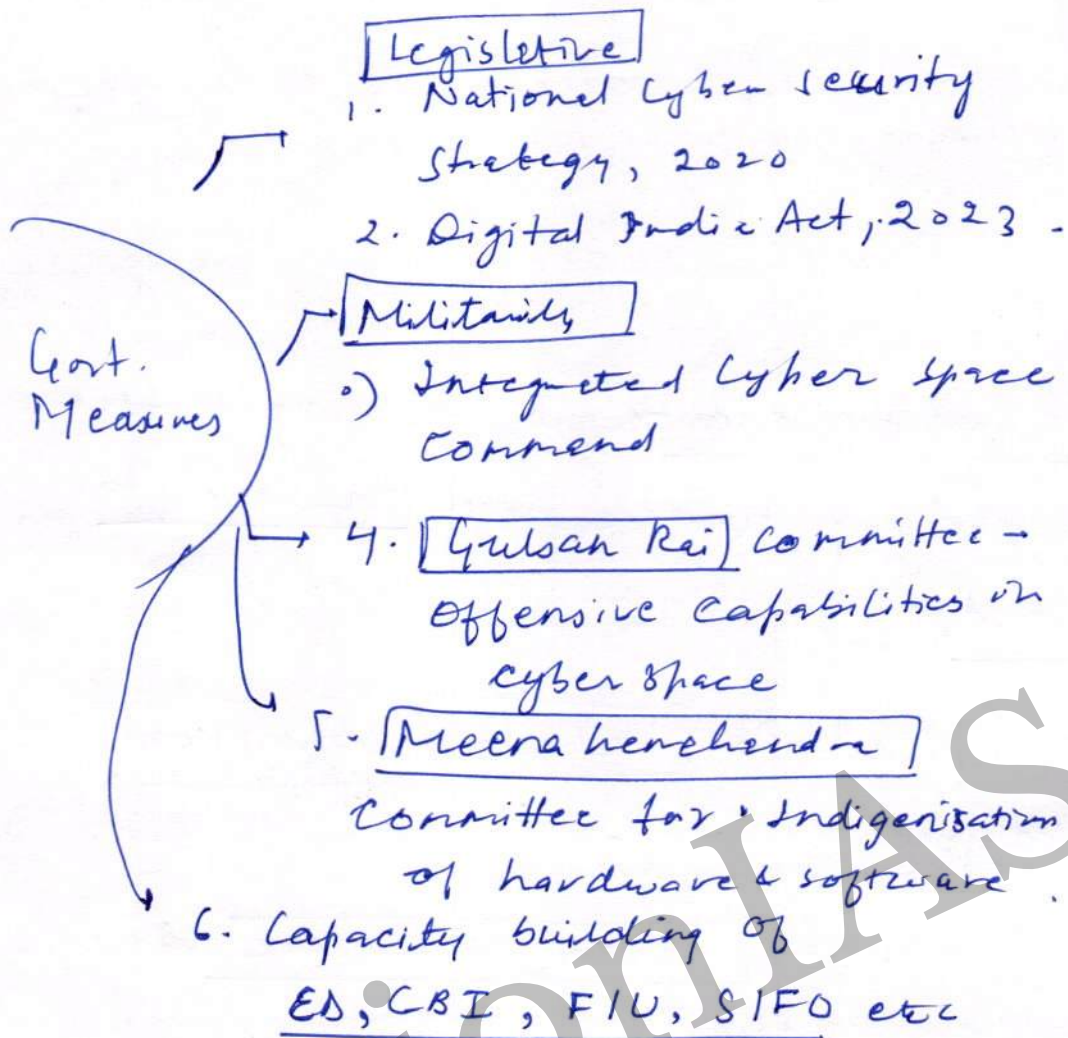 Legisletive
1. National Cyber security
Strategy, 2020
2. Digital India Act, 2023.
Govt.
Measures
Militarily
•) Integrated Cyber space
Command
4. Gulsan Rai committee →
offensive capabilities in
cyber space
5. Meena
Committee for Indigenisation
of hardware & software.
6. Capacity building of
ED, CBI, FIU, SIFO etc
ionIAS